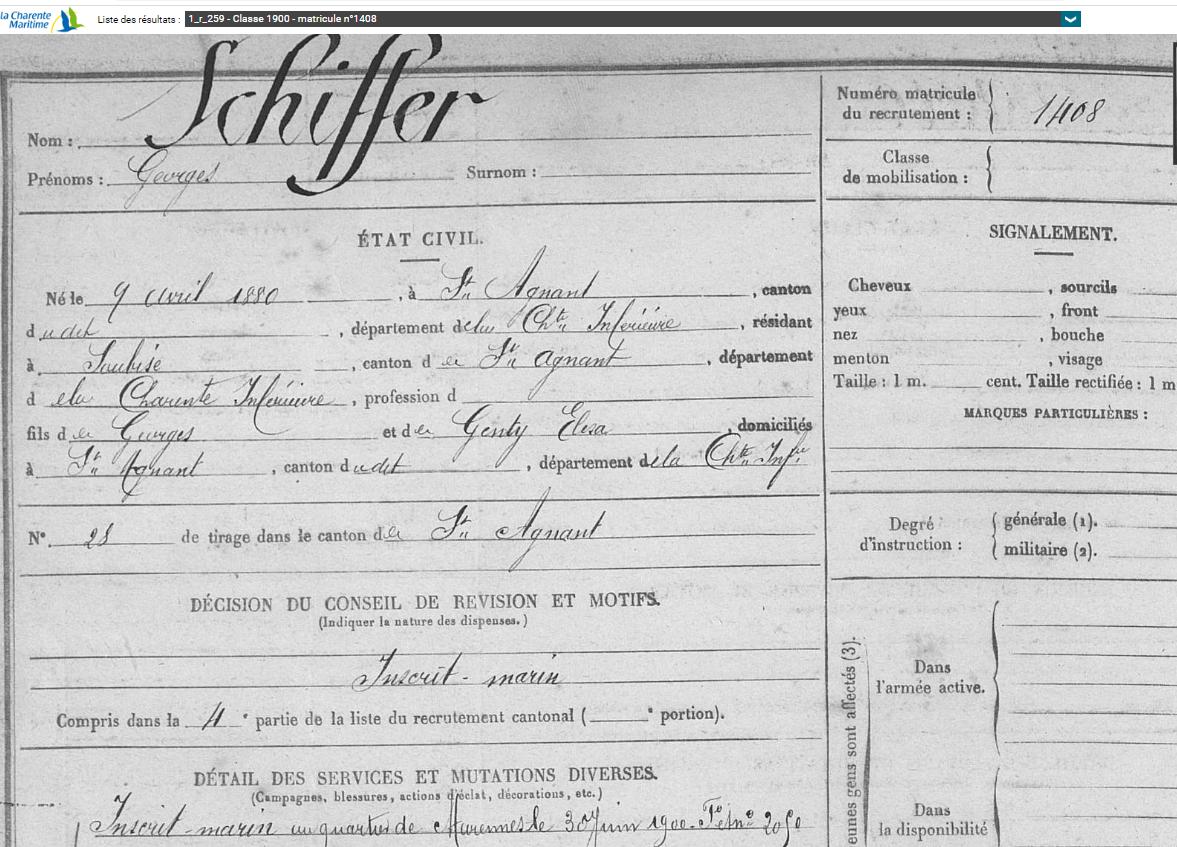 la Charente
Maritime
Liste des résultats : 1_r_259 - Classe 1900 - matricule n°1408
Nom : Schiffer
Prénoms : Georges Surnom :
Numéro matricule
du recrutement : 1408
Classe
de mobilisation :
ÉTAT CIVIL.
Né le 9 avril 1880, à St Agnant, canton
dudit, département de la Chte Inférieure, résidant
à Soubise, canton de St Agnant, département
de la Charente Inférieure, profession d
fils de Georges et de Genty Elisa, domiciliés
à St Agnant, canton dudit, département de la Chte Infre
N° 28 de tirage dans le canton de St Agnant
DÉCISION DU CONSEIL DE REVISION ET MOTIFS.
(Indiquer la nature des dispenses.)
Inscrit-marin
Compris dans la 4e partie de la liste du recrutement cantonal ( e portion).
DÉTAIL DES SERVICES ET MUTATIONS DIVERSES.
(Campagnes, blessures, actions d'éclat, décorations, etc.)
Inscrit-marin au quartier de Marennes le 30 Juin 1900. F° et n°
SIGNALEMENT.
Cheveux , sourcils
yeux , front
nez , bouche
menton , visage
Taille : 1 m. cent. Taille rectifiée : 1 m
MARQUES PARTICULIÈRES :
Degré
d'instruction :
générale (1).
militaire (2).
eunes gens sont affectés (3).
Dans
l'armée active.
Dans
la disponibilité